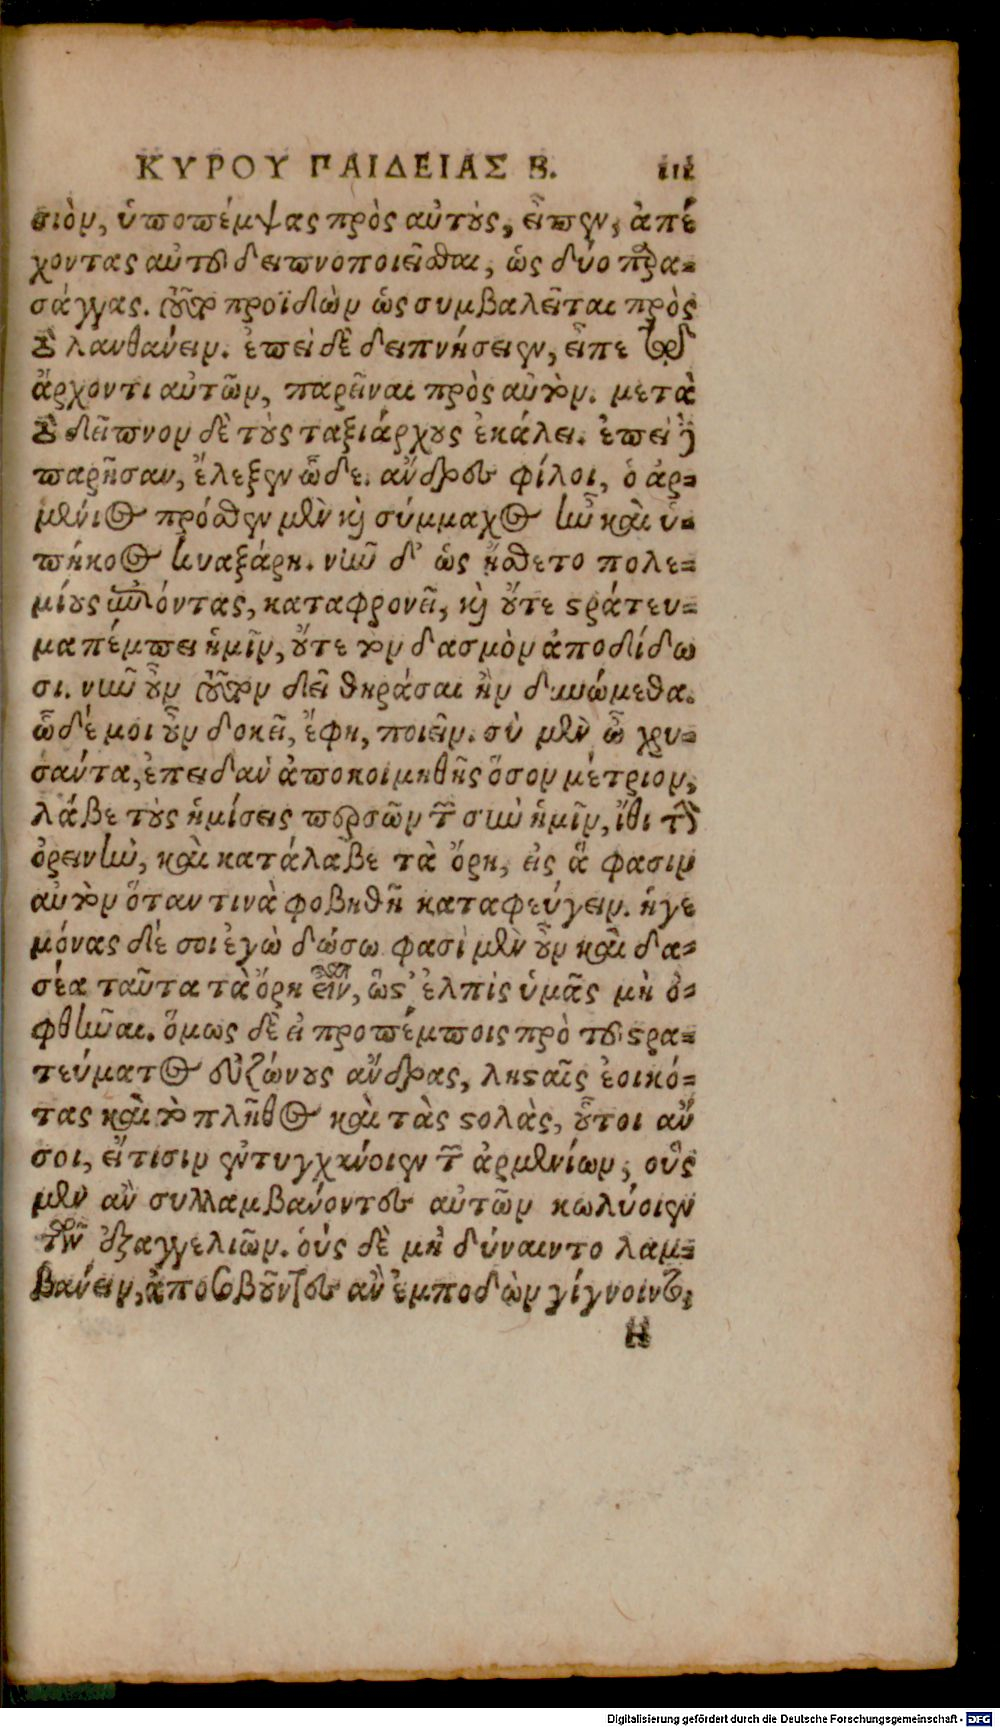 ΚΥΡΟΥ ΠΑΙΔΕΙΑΣ Β. 111
σιον, ὑποπέμψας πρὸς αὐτοὺς, εἶπεν, ἀπέ
χοντας αὐτοῦ δειπνοποιεῖσθαι, ὡς δύο παρα-
σάγγας. οὗτος προϊδὼν ὡς συμβαλεῖται πρὸς
τὸ λανθάνειν. ἐπεὶ δὲ δειπνήσειεν, εἶπε τῷ
ἄρχοντι αὐτῶν, παρεῖναι πρὸς αὐτόν. μετὰ
τὸ δεῖπνον δὲ τοὺς ταξιάρχους ἐκάλει. ἐπεὶ δὲ
παρῆσαν, ἔλεξεν ὧδε. ἄνδρες φίλοι, ὁ ἀρ-
μένιος πρόσθεν μὲν καὶ σύμμαχος ἦν καὶ ὑ-
πήκοος κυαξάρῃ. νῦν δ' ὡς ᾔσθετο πολε-
μίους ἐπιόντας, καταφρονεῖ, καὶ οὔτε στράτευ-
μα πέμπει ἡμῖν, οὔτε τὸν δασμὸν ἀποδίδω
σι. νῦν οὖν τοῦτον δεῖ θηράσαι ἢν δυνώμεθα.
ὧδέ μοι οὖν δοκεῖ, ἔφη, ποιεῖν. σὺ μὲν ὦ χρυ-
σάντα, ἐπειδὰν ἀποκοιμηθῇς ὅσον μέτριον,
λάβε τοὺς ἡμίσεις περσῶν τῶν σὺν ἡμῖν, ἴθι τὴν
ὀρεινὴν, καὶ κατάλαβε τὰ ὄρη, εἰς ἅ φασιν
αὐτὸν ὅταν τινὰ φοβηθῇ καταφεύγειν. ἡγε
μόνας δέ σοι ἐγὼ δώσω φασὶ μὲν οὖν καὶ δα-
σέα ταῦτα τὰ ὄρη εἶναι, ὥστ' ἐλπὶς ὑμᾶς μὴ ὀ-
φθῆναι. ὅμως δὲ εἰ προπέμποις πρὸ τοῦ στρα-
τεύματος εὐζώνους ἄνδρας, λῃσταῖς ἐοικό-
τας καὶ τὸ πλῆθος καὶ τὰς στολὰς, οὗτοι ἄν
σοι, εἴ τισιν ἐντυγχάνοιεν τῶν ἀρμενίων, οὓς
μὲν ἂν συλλαμβάνοντες αὐτῶν κωλύοιεν
τῶν ἐξαγγελιῶν. οὓς δὲ μὴ δύναιντο λαμ-
βάνειν, ἀποσοβοῦντες ἂν ἐμποδὼν γίγνοιντο,
H
Digitalisierung gefördert durch die Deutsche Forschungsgemeinschaft - DFG